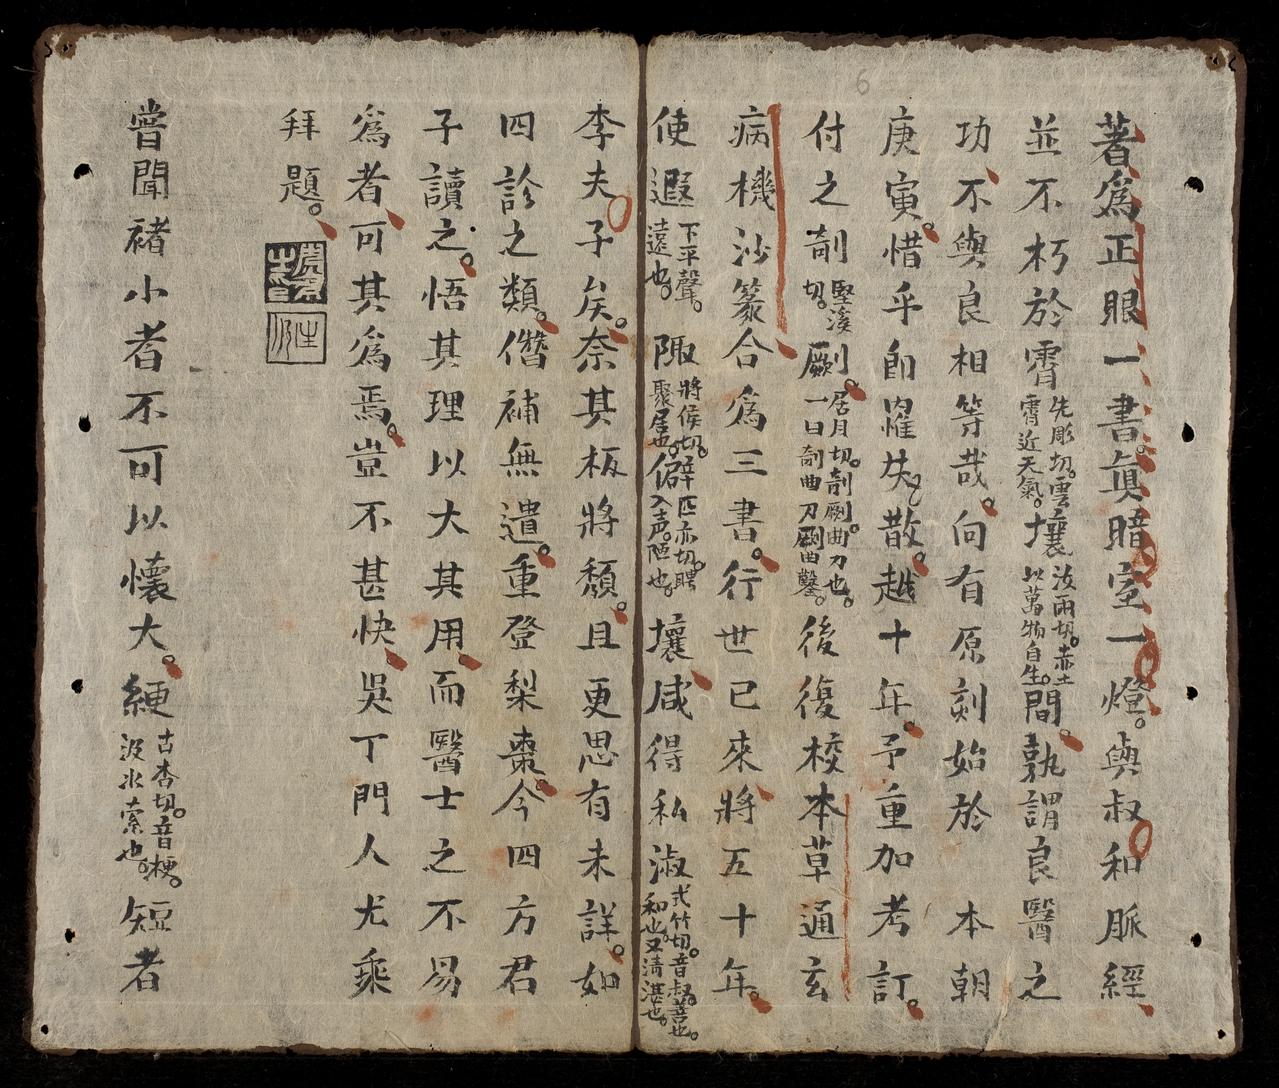 著爲正眼一書。眞暗室一燈。與叔和脈經
並不朽於霄先彫切。雲霄近天氣。壤汝兩切。赤土以萬物自生。間。孰謂良醫之
功不與良相等哉。向有原刻始於 本朝
庚寅。惜乎卽罹失散。越十年。予重加考訂。
付之剞堅溪切。劂居月切。剞劂曲刀也。一曰剞曲刀劂曲鑿。後復校本草通玄
病機沙篆合爲三書。行世已來將五十年。
使遐下平聲。遠也。陬將侯切。聚居也。僻匹亦切。聘入声。陋也。壤咸得私淑式竹切。音叔。善也。和也。又清湛也。
李夫子矣。奈其板將頹。且更思有未詳。如
四診之類。僭補無遺。重登梨棗。今四方君
子讀之。悟其理以大其用。而醫士之不易
爲者可其爲焉。豈不甚快。吳下門人尤乘
拜題。
嘗聞褚小者不可以懷大。綆古杏切。音梗。汲水索也。短者
6